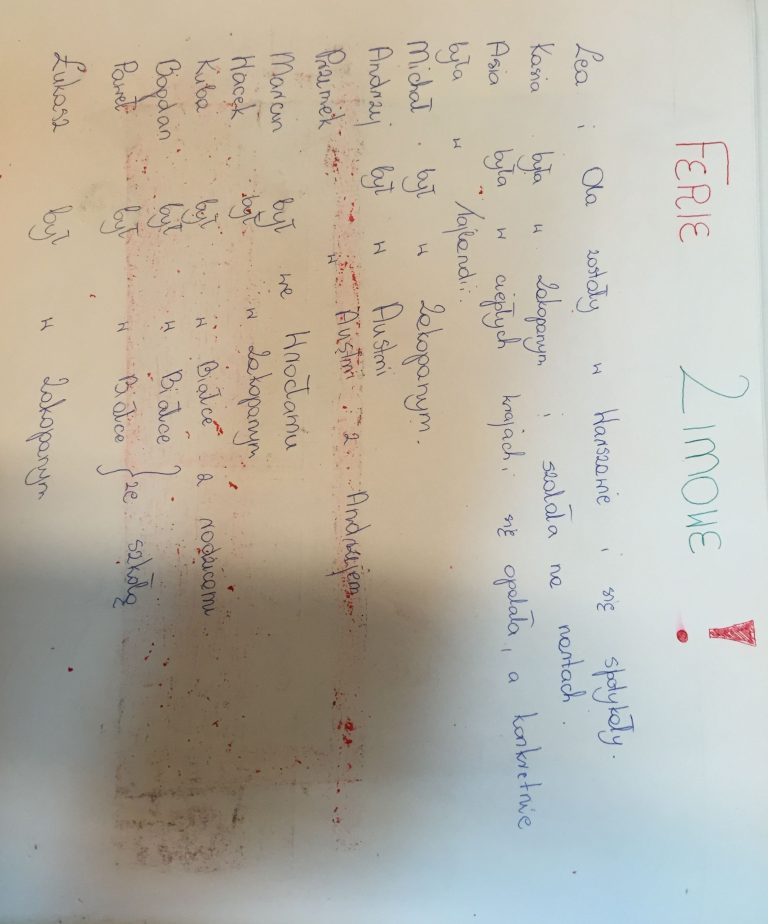 FERIE ZIMOWE!
Lea i Ola zostały w Warszawie i się spotykały.
Kasia była w Zakopanym i szalała na nartach.
Asia była w ciepłych krajach i się opalała, a konkretnie
była w Tajlandii.
Michał był w Zakopanym.
Andrzej był w Austrii
Przemek w Austrii z Andrzejem.
Marcin był we Wrocławiu
Wacek był w Zakopanym
Kuba był w Białce z rodzicami.
Bogdan był w Białce } ze szkołą
Paweł był w Białce
Łukasz był w Zakopanym